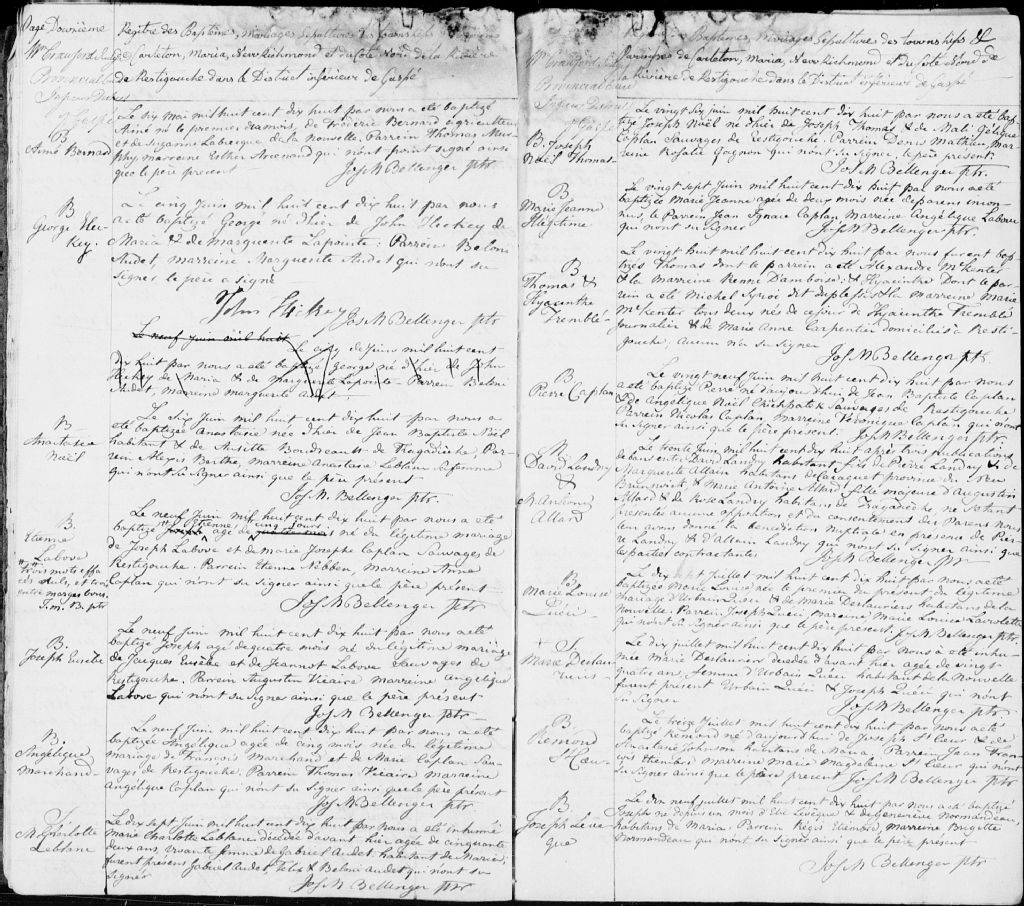 Page Douzième
Régître des Baptêmes, Mariages Sépultures des townships
de Carleton, Maria, New Richmond et du Coté Nord de la Rivière
de Restigouche dans le District inférieur de Gaspé
B
Amé Bernard
Le six Mai mil huit cent dix huit par nous a été baptizé
Aimé né le premier d'Bernard agriculteur
et de Suzanne Labrecque de la nouvelle. Parrein Thomas Mur-
phy marreine Esther Arsenond qui n'ont point signé ainsi
que le père present
Jos. M. Bellenger ptr.
B
George Hic-
key.
Le cinq Juin mil huit cent dix huit par nous
a été baptizé George né d'hier de John Hickey de
Maria & de marguerite Lapointe. Parrein Beloni
Audet, marreine Marguerite Audet qui n'ont su
Signer le père a signé
John Hickey
Jos. M. Bellenger ptr
Le neuf juin mil huit
Le cinq de Juin mil huit cent
dix huit par nous a été baptizé George né d'hier de John
Hickey de Maria & de Marguerite Lapointe. Parrein Beloni
Audet, marreine marguerite Audet.
B
Anastasie
Noël
Le dix Juin mil huit cent dix huit par nous a
été baptizée Anastasie née d'hier de Jean Baptiste Noël
habitant & de Anisitte Boudreault de Tragadiche, Par-
rein Alexis Berthe, marreine Anastasie Leblanc sa femme
qui n'ont su Signer ainsi que le père présent
Jos. M. Bellenger ptr.
B.
Etienne
Labove
trois mots effa-
cés nuls, et trois
entre marges bons.
J. m. B. ptr
Le neuf Juin mil huit cent dix huit par nous a été
baptizé Etienne agé de cinq jours né du légitime mariage
de Joseph Labove et de marie Josephe Caplan Sauvages de
Restigouche. Parrein Etienne Nibben, Marreine Anne
Caplan qui n'ont su Signer ainsi que le père présent
Jos. M. Bellenger ptr
B.
Joseph Eusèbe
Le neuf Juin mil huit cent dix huit par nous a été
baptizé Joseph agé de quatre mois né du légitime mariage
de Jacques Eusèbe et de Jeannot Labove Sauvages de
Restigouche, Parrein Augustin Vicaire marreine angelique
Labove qui n'ont su Signer ainsi que le père présent
Jos. M. Bellenger ptr
B.
Angélique
Marchand
Le neuf Juin mil huit cent dix huit par nous a été
baptizée Angélique agée de cinq mois née du légitime
mariage de François Marchand et de Marie Caplan Sau-
vages de Restigouche, Parrein Thomas Vicaire marreine
Angelique Caplan qui n'ont su Signer ainsi que le père présent
Jos. M. Bellenger ptr
S
M. Charlotte
Leblanc
Le dix sept Juin mil huit cent dix huit par nous a été inhumée
Marie Charlotte Leblanc décédée d'avant hier agée de cinquante
deux ans vivante femme de Gabriel Audet habitant de Maria;
furent présent Gabriel Audet, Félix & Beloni Audet qui n'ont su
Signer
Jos. M. Bellenger ptr
Baptêmes, Mariages Sépulture des townships &
Paroisses de Carleton, Maria, New Richmond et du Coté Nord de
la Rivière de Restigouche dans le District inférieur de Gaspé
B. Joseph
Noël Thomas
Le vingt six juin mil huit cent dix huit par nous a été bap-
tizé Joseph Noël né d'hier de Joseph Thomas & de Mati Gélique
Caplan Sauvages de Restigouche. Parrein Denis Mathieu, Mar-
reine Rosalie Gagnon qui n'ont su Signer, le père présent.
Jos. M. Bellenger ptr.
B
Marie Jeanne
Illégitime
Le vingt sept Juin mil huit cent dix huit par nous a été
baptizée Marie Jeanne agée de deux mois née de parens incon-
nus, le Parrein Jean Ignace Caplan Marreine Angélique Labove
qui n'ont su Signer
Jos. M. Bellenger ptr.
B
Thomas &
Hyacinthe
Tremblé
Le vingt huit mil huit cent dix huit par nous furent bap-
tisés Thomas dont le parrein a été Alexandre McKenter
& la Marreine Renne D'amboise; & Hyacinthe Dont le par-
rein a été Michel Syroi dit duplessis & la marreine Marie
McKenter tous deux nés de ce jour de Hyacinthe Tremblé
Journalier & de Marie Anne Carpentier domiciliés à Resti-
gouche, Aucun n'a su Signer
Jos. M. Bellenger ptr.
B
Pierre Caplan
Le vingt neuf Juin mil huit cent dix huit par nous
a été baptizé Pierre né d'aujourd'hui de Jean Baptiste Caplan
& de Angélique Noël Sauvages de Restigouche
Parrein Nicolas Caplan Marreine Véronique Caplan qui n'ont
su Signer ainsi que le père présent.
Jos. M. Bellenger ptr.
M.
David Landry
&
M. Antoine
Allard
Le trente Juin mil huit cent dix huit après trois publications
de bans entre David Landry habitant fils de Pierre Landry & de
Marguerite Allain habitans de Caraquet province du New
Brunswick & Marie Antoine Allard fille majeure d'Augustin
Allard & de Rose Landry habitans de Tragadiche, ne s'étant
présentée aucune opposition et du consentement des Parens nous
leur avons donné la bénédiction nuptiale en presence de Pier-
re Landry & d'Allain Landry qui n'ont su Signer ainsi que
les parties contractantes.
Jos. M. Bellenger ptr
B
Marie Louise
Quéri
Le dix sept Juillet mil huit cent dix huit par nous a été
baptizée Marie Louise née le premier du présent du légitime
mariage d'Urbain Quéri & de Marie Deslauriers habitans de la
Nouvelle. Parrein Joseph Quéri, Marreine Marie Louise Lavoilette
qui n'ont su Signer ainsi que le père present.
Jos. M. Bellenger ptr
+ S
Marie Deslau-
riers
Le dix juillet mil huit cent dix huit par Nous a été inhu-
mée Marie Deslauriers decedée d'avant hier agée de vingt
quatre ans, femme d'Urbain Quéri habitant de la Nouvelle
furent present Urbain Quéri & Joseph Quéri qui n'ont
su Signer
Jos. M. Bellenger ptr
B.
Remond
St Cœur
Le treize Juillet mil huit cent dix huit par nous a été
baptizé Remond né d'aujourd'hui de Joseph St Cœur & de
Anastasie Johnson habitans de Maria. Parrein Jean Fran-
cois marreine marie magdeleine St Cœur qui n'ont
su Signer ainsi que le père present
Jos. M. Bellenger ptr
B
Joseph Leve-
que
Le dix neuf juillet mil huit cent dix huit par nous a été baptizé
Joseph né depuis un mois d'Eté Levêque & de Geneviève Normandeau,
habitans de Maria. Parrein Régis marreine Brigitte
Normandeau qui n'ont su Signer ainsi que le père présent
Jos. M. Bellenger ptr